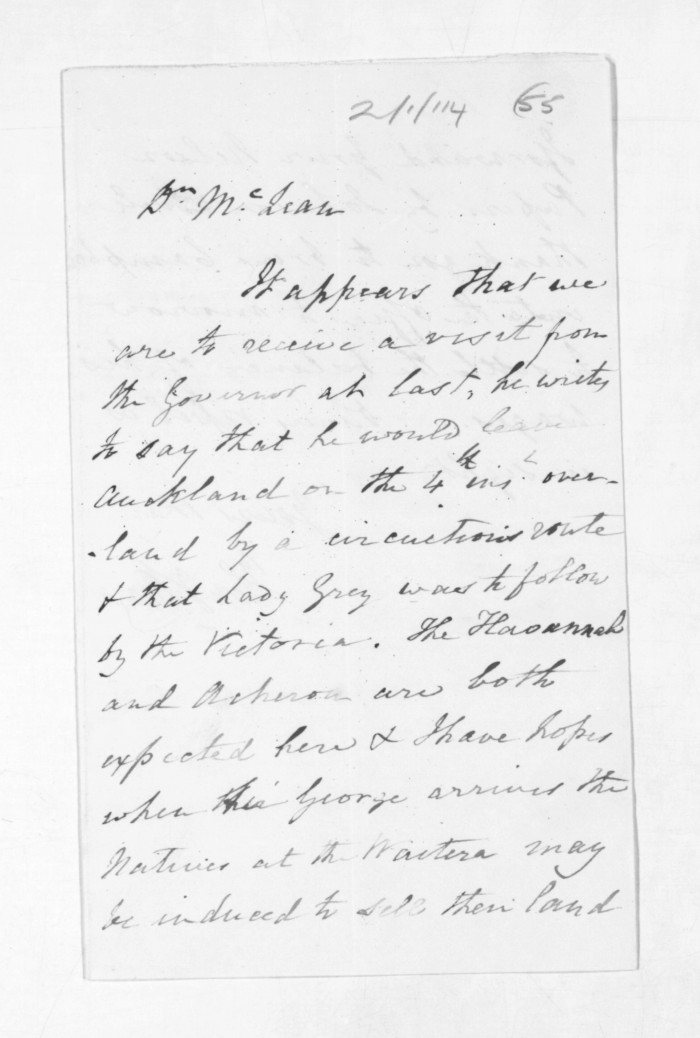 2/1/114 55
Dr McLean
It appears that we
are to receive a visit from
the Governor at last, he writes
to say that he would leave
Auckland on the 4th inst over-
land by a circuitous route
& that Lady Grey was to follow
by the Victoria. The Havannah
and Acheron are both
expected here & I have hopes
when Sir George arrives the
Natives at the Waitera may
be induced to sell their land